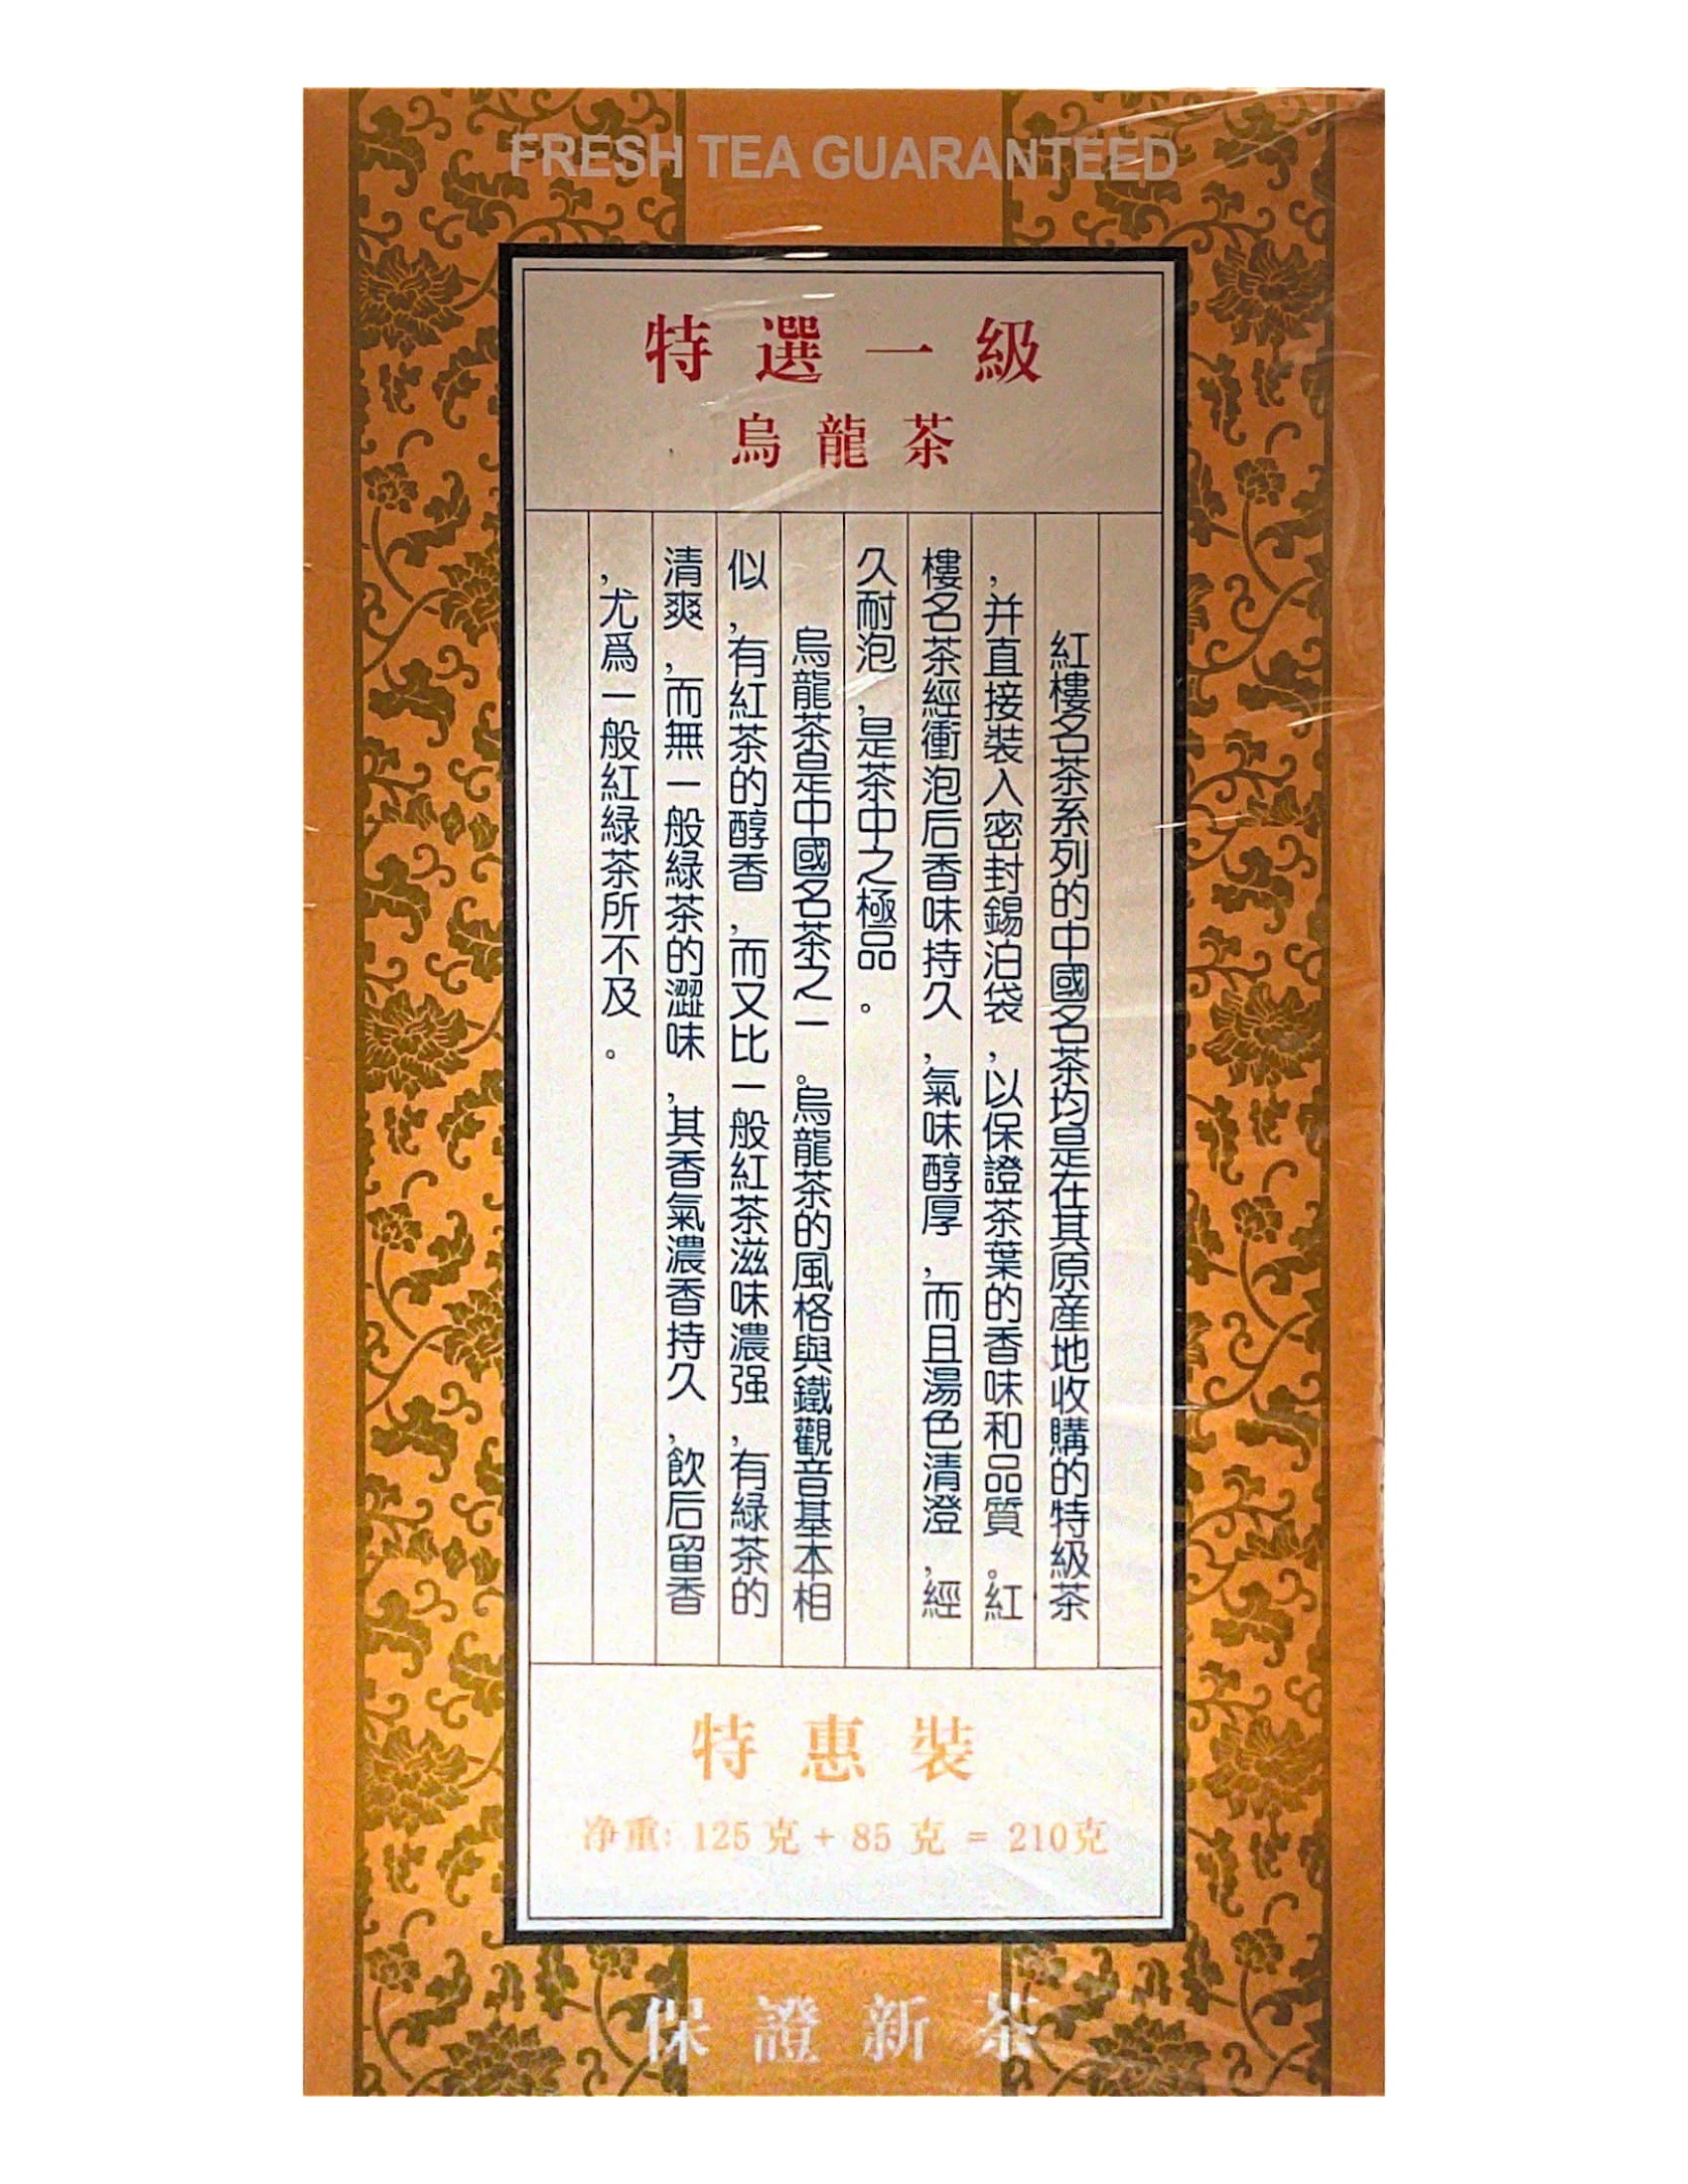 FRESH TEA GUARANTEED
特選一級
烏龍茶
紅樓名茶系列的中國名茶均是在其原産地收購的特級茶
，并直接裝入密封錫泊袋，以保證茶葉的香味和品質。紅
樓名茶經衝泡后香味持久，氣味醇厚，而且湯色清澄，經
久耐泡，是茶中之極品。
烏龍茶是中國名茶之一。烏龍茶的風格與鐵觀音基本相
似，有紅茶的醇香，而又比一般紅茶滋味濃强，有緑茶的
清爽，而無一般緑茶的澀味，其香氣濃香持久，飲后留香
，尤爲一般紅緑茶所不及。
特惠裝
净重: 125 克 + 85 克 = 210克
保證新茶